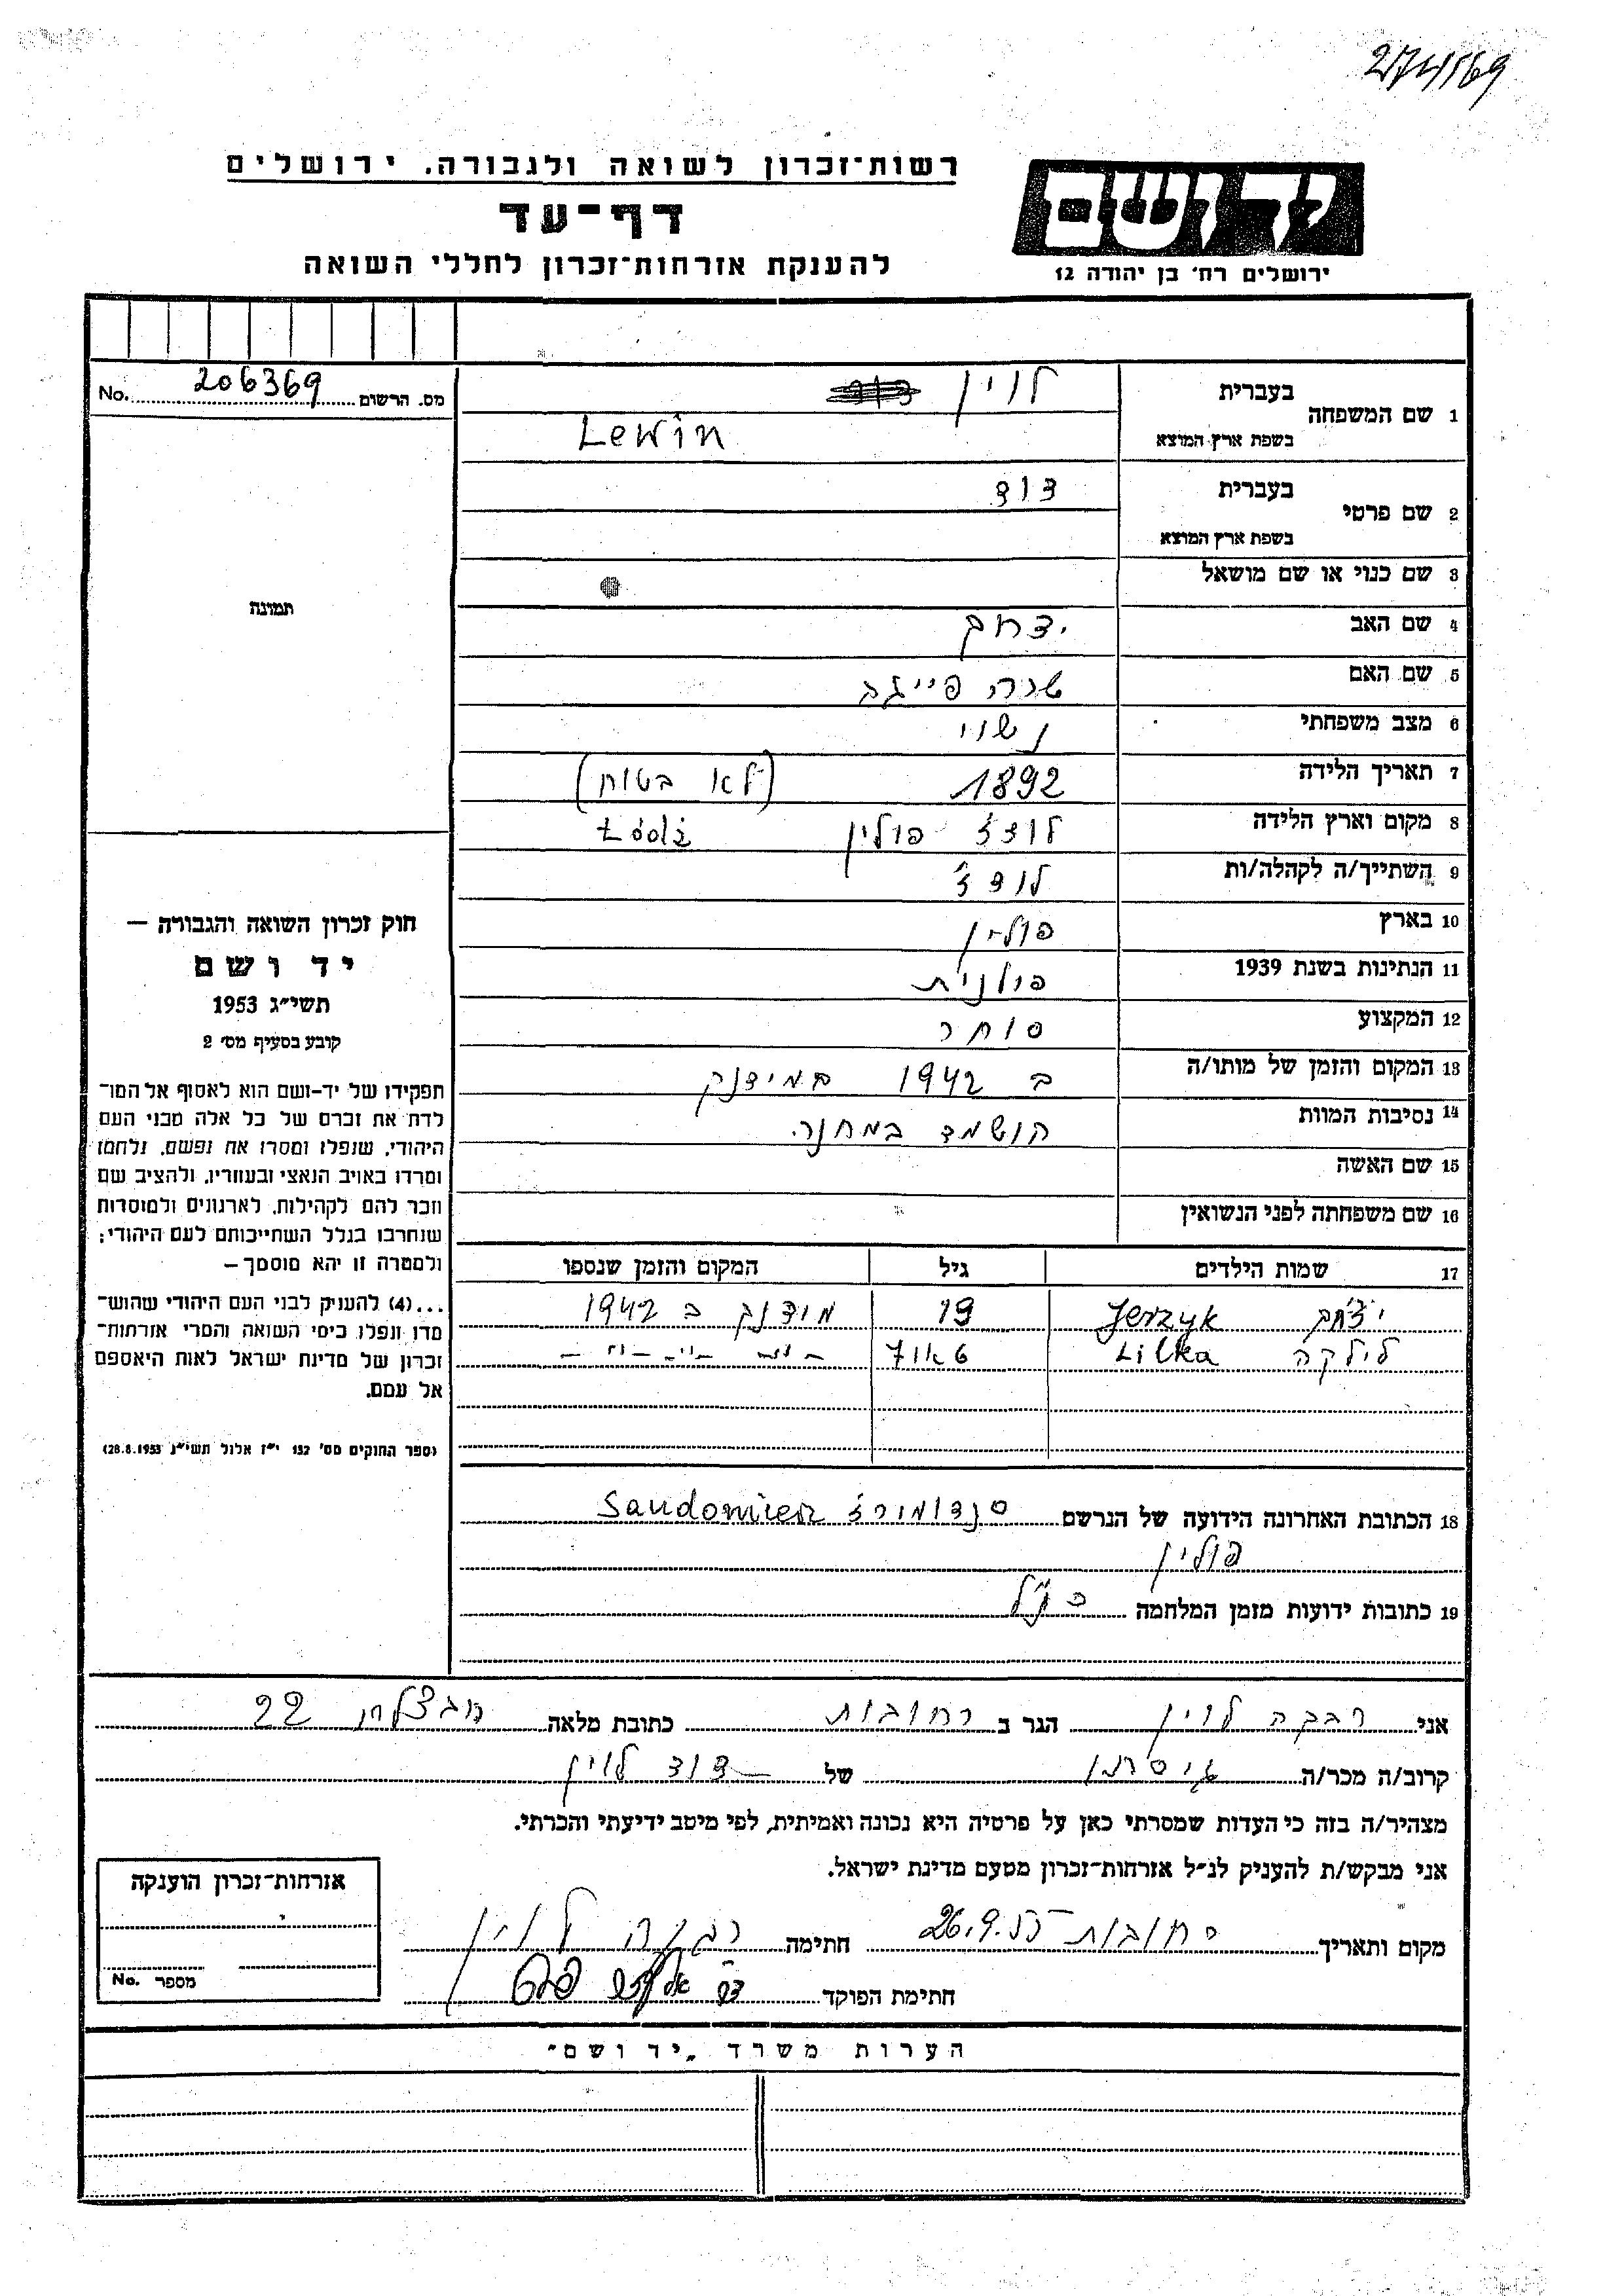 274/169
רשות־זכרון לשואה ולגבורה. ירושלים
יד ושם
דף-עד
להענקת אזרחות־זכרון לחללי השואה
ירושלים רח' בן יהודה 12
מס. הרשום 206369 No.
1 שם המשפחה בעברית לוין
בשפת ארץ המוצא Lewin
2 שם פרטי בעברית דוד
בשפת ארץ המוצא
3 שם כנוי או שם מושאל
תמונה
4 שם האב יצחק
5 שם האם שרה פייגה
6 מצב משפחתי נשוי
7 תאריך הלידה 1892 (לא בטוח)
8 מקום וארץ הלידה לודז' פולין Łódź
9 השתייך/ה לקהלה/ות לודז'
10 בארץ פולין
11 הנתינות בשנת 1939 פולנית
12 המקצוע סוחר
13 המקום והזמן של מותו/ה ב 1942 במידנק
14 נסיבות המוות הושמד במחנה.
15 שם האשה
16 שם משפחתה לפני הנשואין
17 שמות הילדים גיל המקום והזמן שנספו
יצחק Jerzyk 19 מידנק ב 1942
לילקה Lilka
18 הכתובת האחרונה הידועה של הנרשם סנדומירז Sandomierz
פולין
19 כתובות ידועות מזמן המלחמה כנ"ל
חוק זכרון השואה והגבורה —
יד ושם
תשי״ג 1953
קובע בסעיף מס' 2
תפקידו של יד-ושם הוא לאסוף אל המו־
לדת את זכרם של כל אלה מבני העם
היהודי, שנפלו ומסרו את נפשם, נלחמו
ומרדו באויב הנאצי ובעוזריו, ולהציב שם
וזכר להם לקהילות, לארגונים ולמוסדות
שנחרבו בגלל השתייכותם לעם היהודי;
ולמטרה זו יהא מוסמך —
...(4) להעניק לבני העם היהודי שהוש־
מדו ונפלו בימי השואה והמרי אזרחות־
זכרון של מדינת ישראל לאות היאספם
אל עמם.
(ספר החוקים מס' 132 י״ז אלול תשי״ג 28.8.1953)
אני רבקה לוין הגר ב רחובות כתובת מלאה 22
קרוב/ה מכר/ה גיסתו של דוד לוין
מצהיר/ה בזה כי העדות שמסרתי כאן על פרטיה היא נכונה ואמיתית, לפי מיטב ידיעתי והכרתי.
אני מבקש/ת להעניק לנ״ל אזרחות־זכרון מטעם מדינת ישראל.
מקום ותאריך רחובות 26.9.55 חתימה רבקה לוין
חתימת הפוקד
אזרחות־זכרון הוענקה
מספר No.
הערות משרד „יד ושם״